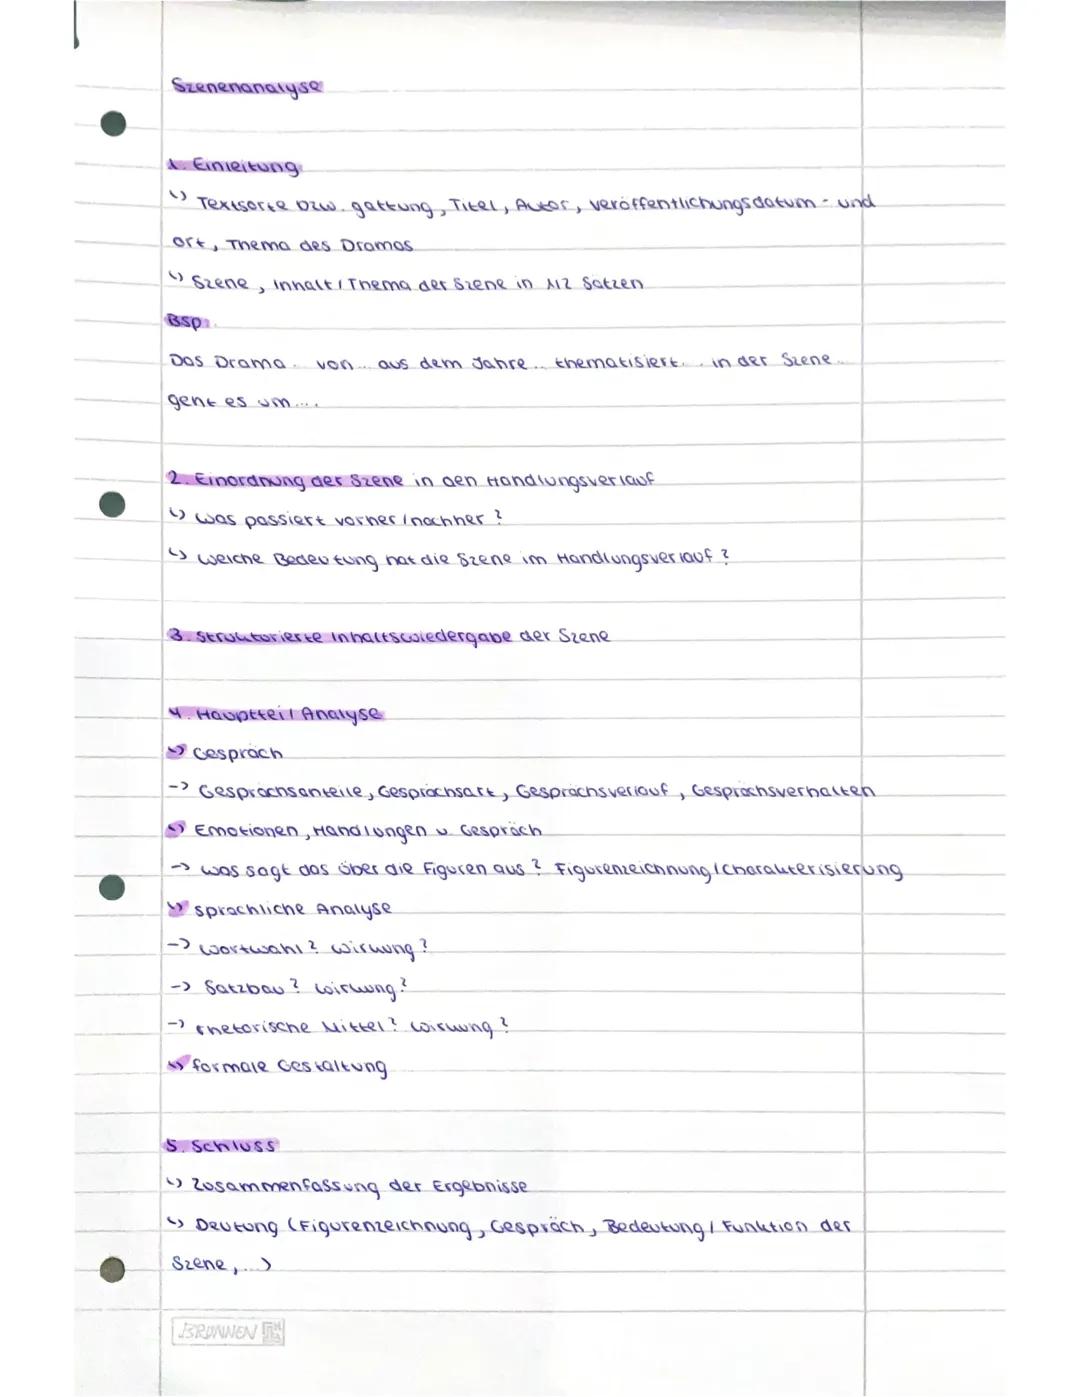 Szenenanalyse
1. Einleitung
↳ Textsorte bzw. gattung, Titel, Autor, veröffentlichungsdatum - und
ort, Thema des Dramas
↳ Szene, Inhalt / Thema der Szene in 1/2 Sätzen
Bsp:
Das Drama... von... aus dem Jahre... thematisiert... in der Szene...
geht es um...
2. Einordnung der Szene in den Handlungsverlauf
↳ was passiert vorher / nachher?
↳ welche Bedeutung hat die Szene im Handlungsverlauf?
3. Strukturierte Inhaltswiedergabe der Szene
4. Hauptteil Analyse
↳ Gespräch
-> Gesprächsanteile, Gesprächsart, Gesprächsverlauf, Gesprächsverhalten
↳ Emotionen, Handlungen u. Gespräch
-> was sagt das über die Figuren aus? Figurenzeichnung / Charakterisierung
↳ sprachliche Analyse
-> wortwahl? wirkung?
-> Satzbau? wirkung?
-> rhetorische Mittel? wirkung?
↳ formale Gestaltung
5. Schluss
↳ Zusammenfassung der Ergebnisse
↳ Deutung (Figurenzeichnung, Gespräch, Bedeutung / Funktion der
Szene,...)
BRUNNEN